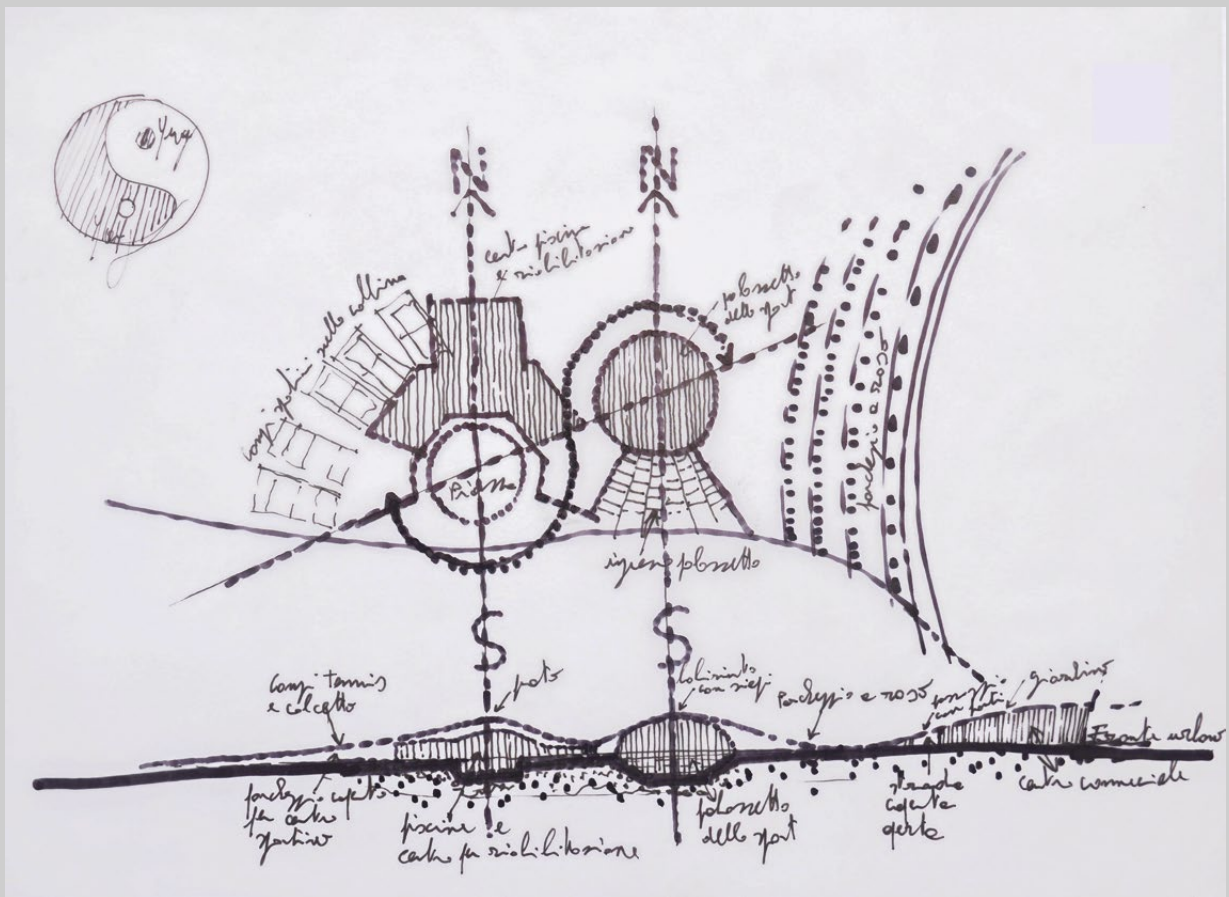 Yang
Yin
N
N
centro piscina
e riabilitazione
palazzetto
dello sport
campi sportivi sulla collina
Piazza
parcheggio a raso
ingresso palazzetto
S
S
campi tennis
e calcetto
prato
con siepi
Parcheggio a raso
giardino
Fronte urbano
parcheggio coperto
per centro
sportivo
piscine e
centro per riabilitazione
palazzetto
dello sport
strada
coperta
aperta
centro commerciale